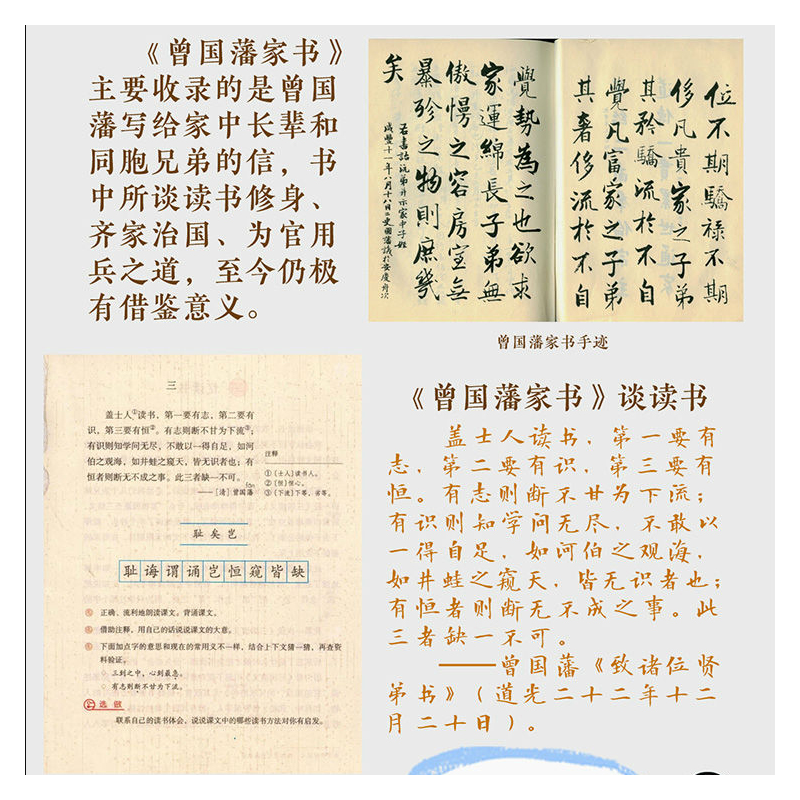 《曾国藩家书》
主要收录的是曾国
藩写给家中长辈和
同胞兄弟的信，书
中所谈读书修身、
齐家治国、为官用
兵之道，至今仍极
有借鉴意义。
位不期驕祿不期
侈凡貴家之子弟
其矜驕流於不自
覺凡富家之子弟
其奢侈流於不自
覺勢為之也欲求
家運綿長子弟無
傲慢之容房室無
暴殄之物則庶幾
矣
曾国藩家书手迹
三
盖士人①读书，第一要有志，第二要有
识，第三要有恒②。有志则断不甘为下流③；
有识则知学问无尽，不敢以一得自足，如河
伯之观海，如井蛙之窥天，皆无识者也；有
恒者则断无不成之事。此三者缺一不可。
——[清]曾国藩
注释
①〔士人〕读书人。
②〔恒〕恒心。
③〔下流〕下等，劣等。
耻矣岂
耻诲谓诵岂恒窥皆缺
正确、流利地朗读课文。背诵课文。
借助注释，用自己的话说说课文的大意。
下面加点字的意思和现在的常用义不一样，结合上下文猜一猜，再查资
料验证。
◇ 三到之中，心到最急。
◇ 有志则断不甘为下流。
选做
联系自己的读书体会，说说课文中的哪些读书方法对你有启发。
《曾国藩家书》谈读书
盖士人读书，第一要有
志，第二要有识，第三要有
恒。有志则断不甘为下流；
有识则知学问无尽，不敢以
一得自足，如河伯之观海，
如井蛙之窥天，皆无识者也；
有恒者则断无不成之事。此
三者缺一不可。
——曾国藩《致诸位贤
弟书》（道光二十二年十二
月二十日）。